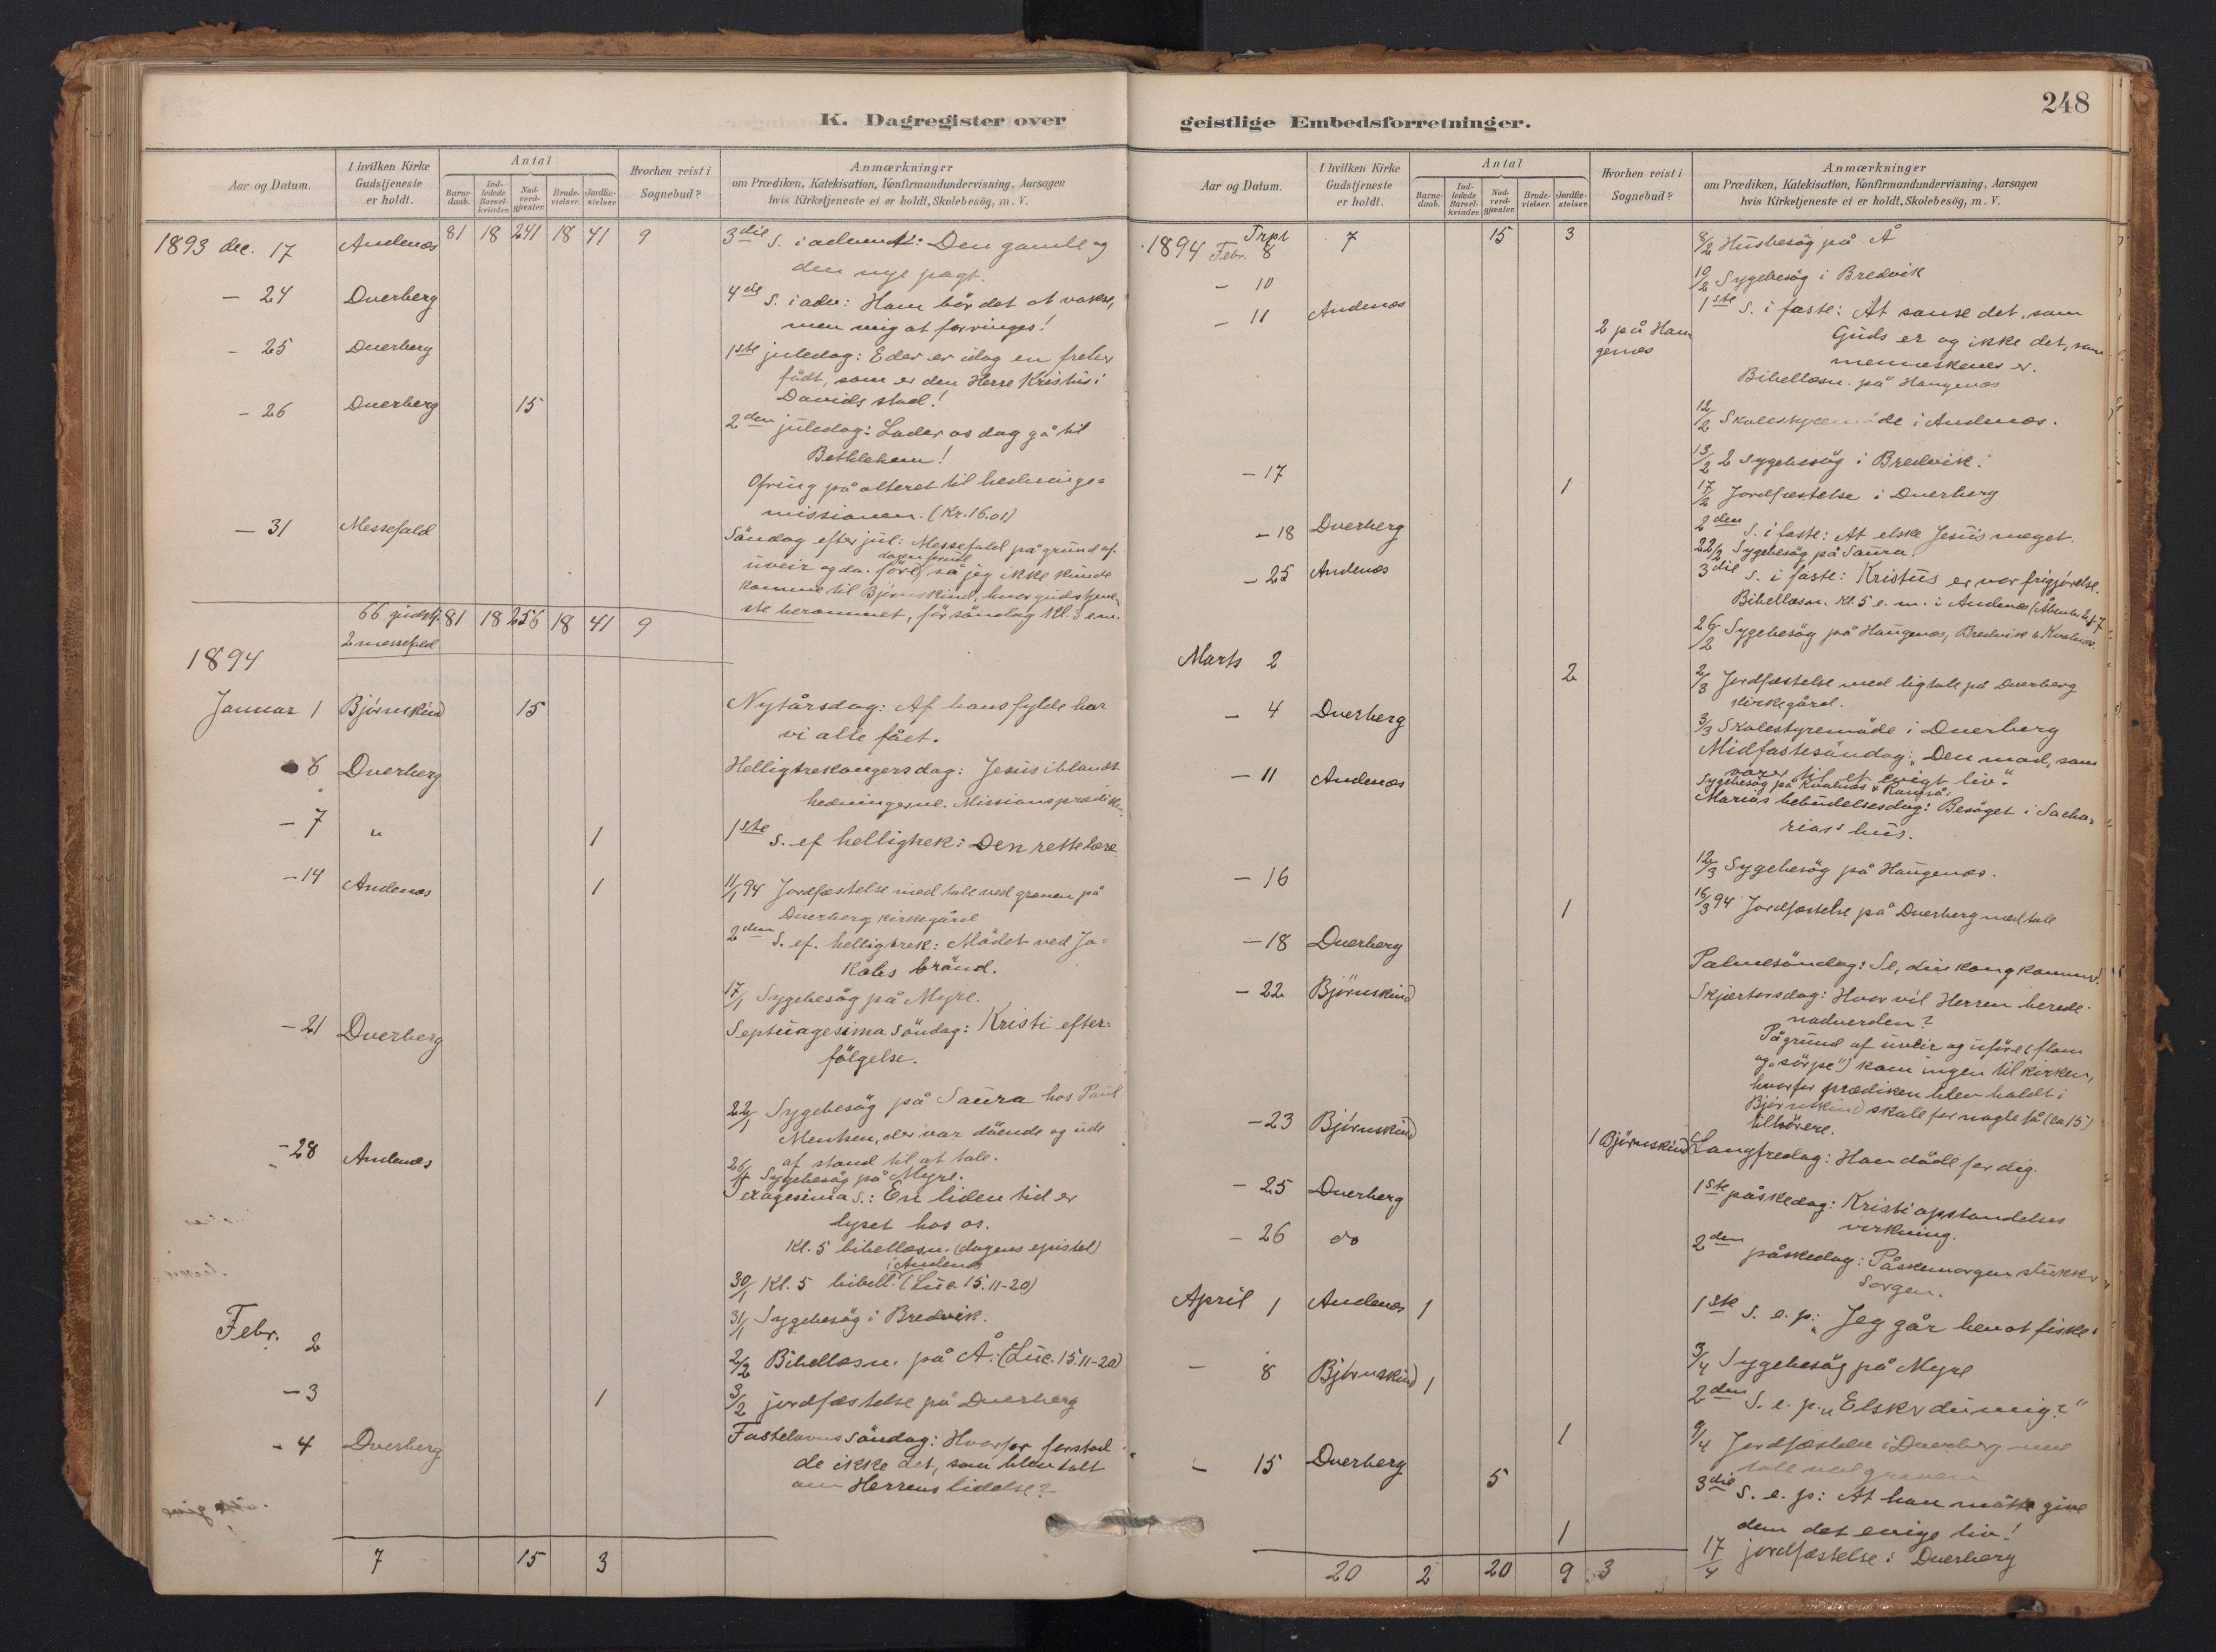 K. Dagregister over
Aar og Datum.
I hvilken Kirke Gudstjeneste er holdt.
Antal
Barne-daab.
Ind-ledede Barsel-kvinder.
Nad-verd-gjæster.
Brude-vielser.
Jordfæ-stelser.
Hvorhen reist i Sognebud?
Anmærkninger
om Prædiken, Katekisation, Konfirmandundervisning, Aarsagen
hvis Kirketjeneste ei er holdt, Skolebesög, m. V.
1893 dec. 17 Andenæs 81 18 241 18 41 9 3die S. i advent: Den gamle og
den nye pagt.
- 24 Dverberg 4de S. i adv: Ham bör det at vokse,
men mig at forringes!
- 25 Dverberg 1ste juledag: Eder er idag en frelser
födt, som er den Herre Kristus i
Davids stad!
- 26 Dverberg 15 2den juledag: Lader os dog gå til
Bethlehem!
Ofring på alteret til hedninge=
missionen. (Kr. 16.01)
- 31 Messefald Söndag efter jul: Messefald på grund af
uveir og da. före, dagen forud så jeg ikke kunde
komme til Bjørnskind, hvor gudstjene-
ste berammet, för söndag kl. 3 e.m.
66 gudstj. 81 18 256 18 41 9
2 messefald
1894
Januar 1 Bjørnskind 15 Nytårsdag: Af hans fylde har
vi alle fået.
6 Dverberg Helligtrekongersdag: Jesus iblandt
hedningerne. Missionsprædiken.
- 7 " 1 1ste S. ef helligtrek: Den rette lære.
- 14 Andenæs 1 11/1 94 Jordfæstelse med tale ved graven på
Dverberg kirkegård
2den S. ef. helligtrek: Mödet ved Ja=
kobs brönd.
17/1 Sygebesög på Myre.
- 21 Dverberg Septuagesima söndag: Kristi efter=
fölgelse.
22/1 Sygebesög på Saura hos Paul
, der var döende og ude
af stand til at tale.
26/1 Sygebesög på Myre.
- 28 Andenæs Sexagesima S.: En liden tid er
lyset hos os.
Kl. 5 bibellæsn. (dagens epistel)
i Andenæs
30/1 Kl. 5 bibell. (Luc. 15. 11-20)
31/1 Sygebesög i Bredvik.
Febr. 2 2/2 Bibellæsn. på Å: (Luc. 15. 11-20)
- 3 1 3/2 jordfæstelse på Dverberg
- 4 Dverberg Fastelavns söndag: Hvorfor forstod
de ikke det, som blev talt
om Herrens lidelse?
7 15 3
248
geistlige Embedsforretninger.
Aar og Datum.
I hvilken Kirke Gudstjeneste er holdt.
Antal
Barne-daab.
Ind-ledede Barsel-kvinder.
Nad-verd-gjæster.
Brude-vielser.
Jordfæ-stelser.
Hvorhen reist i Sognebud?
Anmærkninger
om Prædiken, Katekisation, Konfirmandundervisning, Aarsagen
hvis Kirketjeneste ei er holdt, Skolebesög, m. V.
Trpt 7 15 3
1894 Febr. 8 8/2 Husbesög på Å
- 10 10/2 Sygebesög i Bredvik
- 11 Andenæs 1ste S. i faste: At sanse det, som
2 på Hau Guds er og ikke det, som
genæs menneskenes er.
Bibellæsn. på Haugenæs
12/2 Skolestyremöde i Andenæs.
13/2 2 Sygebesög i Bredvik.
- 17 1 17/2 Jordfæstelse i Dverberg
- 18 Dverberg 2den S. i faste: At elske Jesus meget.
22/2 Sygebesög på Saura.
- 25 Andenæs 3die S. i faste: Kristus er vor frigjörelse.
Bibellæsn. kl. 5 e. m. i Andenæs (Åbenb. 2, 1-7
26/2 Sygebesög på Haugenæs, Bredvik & Kvalnæs.
Marts 2 2 2/3 Jordfæstelse med ligtale på Dverberg
kirkegård.
3/3 Skolestyremöde i Dverberg
- 4 Dverberg Midfastesöndag: "Den mad, som
varer til et evigt liv".
Sygebesög på Kvalnæs &
- 11 Andenæs Mariæ bebudelsesdag: Besöget i Sacha-
rias's hus.
12/3 Sygebesög på Haugenæs.
- 16 1 16/3 94 Jordfæstelse på Dverberg med tale
- 18 Dverberg Palmesöndag: Se, din kong kommer!
- 22 Bjørnskind Skjærtorsdag: Hvor vil Herren berede
nadverden?
På grund af uveir og uföre (flom
og "sörpe") kom ingen til kirken,
hvorfor prædiken blev holdt i
Bjørnskind skole for nogle få (ca 15)
tilhörere.
- 23 Bjørnskind 1 Bjørnskind Langfredag: Han döde for dig.
- 25 Dverberg 1ste påskedag: Kristi opstandelses
virkning.
- 26 do 2den påskedag: Påskemorgen slukker
sorgen.
April 1 Andenæs 1 1ste S. e. p: "Jeg går hen at fiske"
3/4 Sygebesög på Myre
- 8 Bjørnskind 1 2den S. e. p: "Elsker du mig?"
1 9/4 Jordfæstelse i Dverberg med
tale ved graven
- 15 Dverberg 5 3die S. e. p: At han måtte give
dem det evige liv!
1 17/4 jordfæstelse i Dverberg
20 2 20 9 3